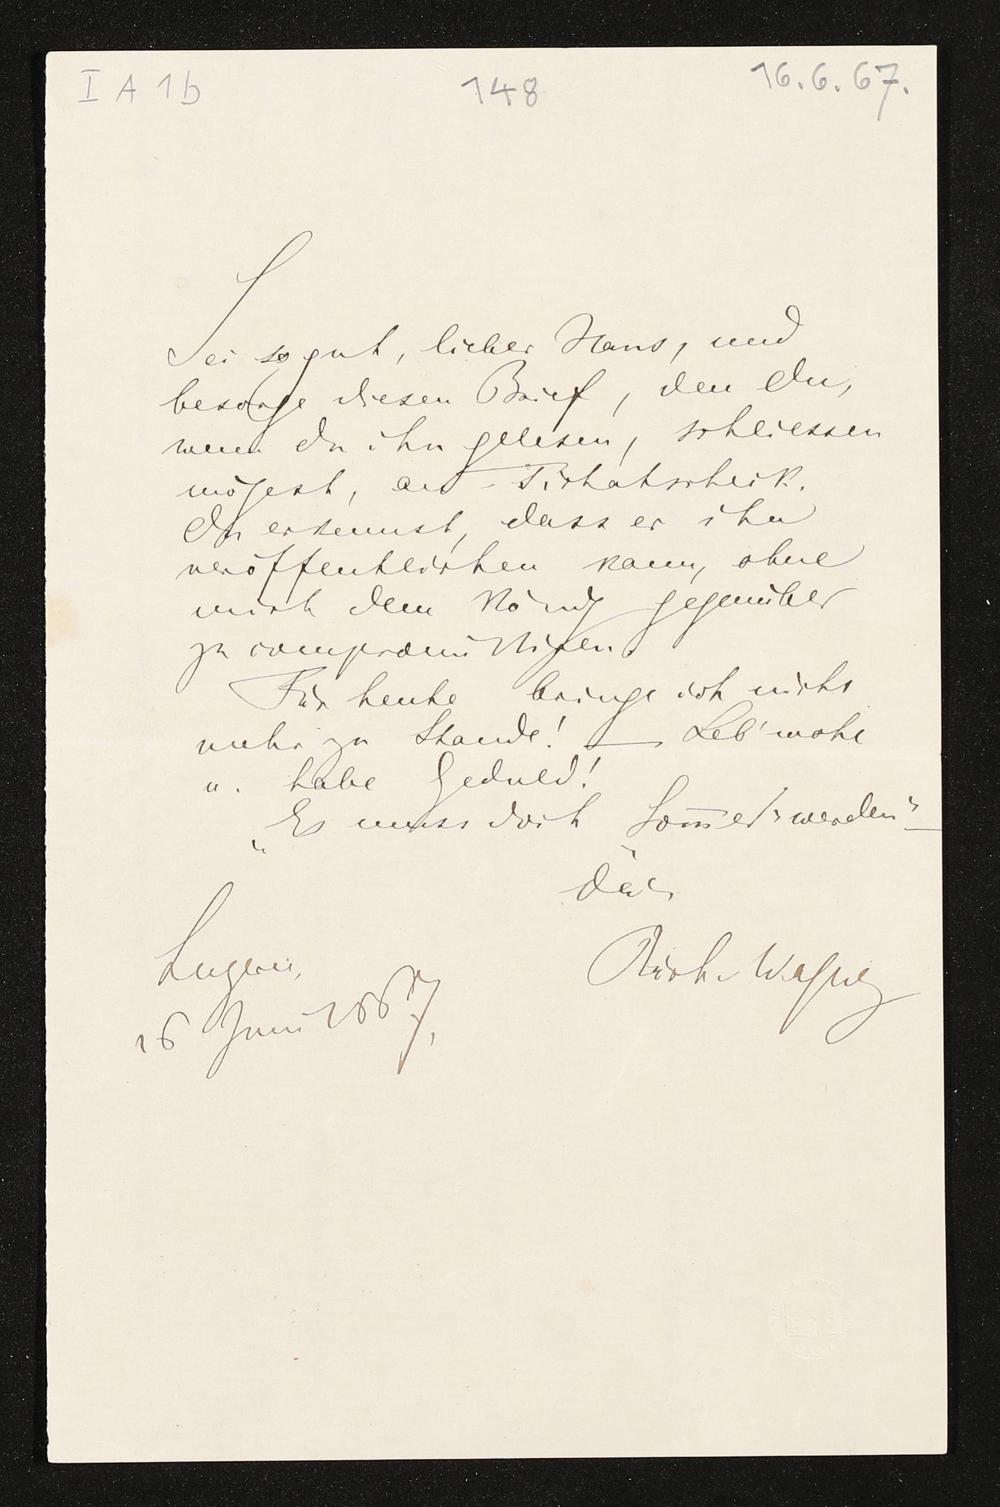 I A 1b
148
16.6.67.
Sei so gut, lieber Hans, und
besorge diesen Brief, den Du,
wenn Du ihn gelesen, schliessen
mögest, an Tichatscheck.
Du erkennst, dass er ihn
veröffentlichen kann, ohne
mich dem König gegenüber
zu compromittiren.
Für heute bringe ich nichts
mehr zu Stande! — Leb' wohl
u. habe Geduld!
„Es muss doch Som̅er werden" —
Dein
Rich. Wagner
Luzern,
16 Juni 1867.